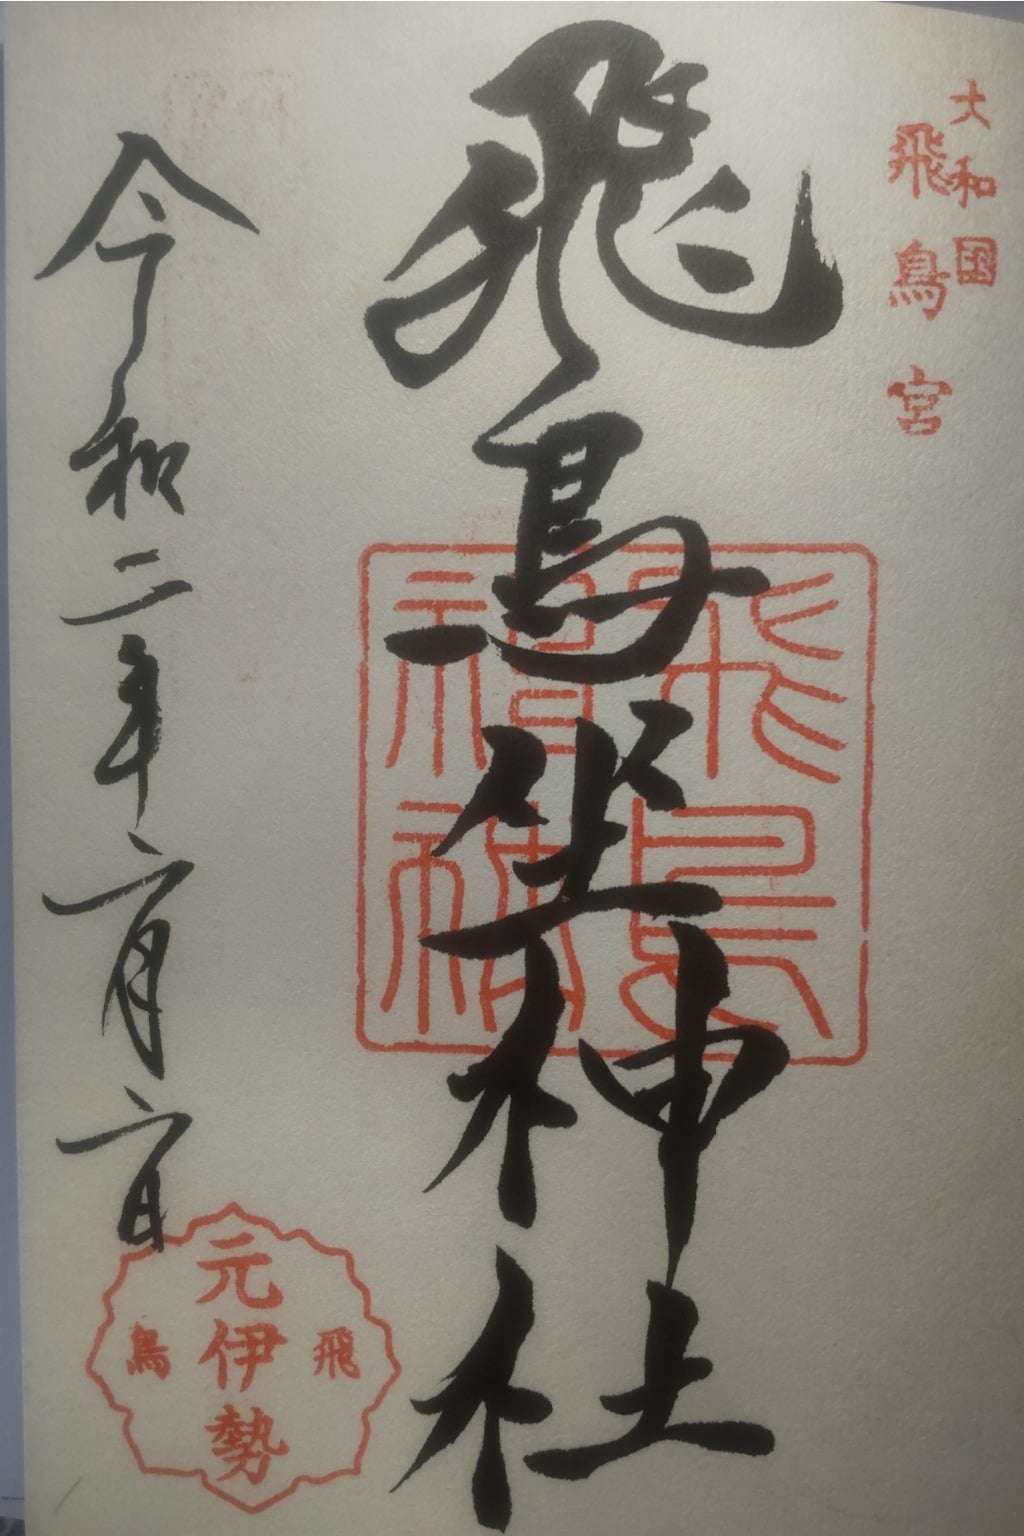 大和国
飛鳥宮
飛鳥坐神社
飛鳥
令和二年二月二日
飛鳥
元伊勢